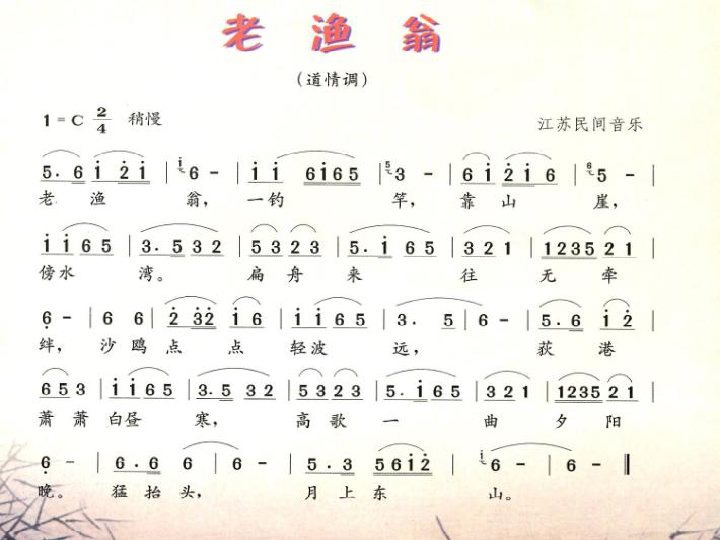 老 渔 翁
（道情调）
1 = C 2/4 稍慢 江苏民间音乐
5. 6 i 2 i | i 6 - | i i 6 i 6 5 | 5 3 - | 6 i 2 i 6 | 6 5 - |
老 渔 翁， 一 钓 竿， 靠 山 崖，
i i 6 5 | 3. 5 3 2 | 5 3 2 3 | 5. i 6 5 | 3 2 1 | 1 2 3 5 2 1 |
傍 水 湾。 扁 舟 来 往 无 牵
6 - | 6 6 | 2 3 2 i 6 | i i 6 5 | 3. 5 | 6 - | 5. 6 i 2 |
绊， 沙 鸥 点 点 轻 波 远， 荻 港
6 5 3 | i i 6 5 | 3. 5 3 2 | 5 3 2 3 | 5. i 6 5 | 3 2 1 | 1 2 3 5 2 1 |
萧 萧 白 昼 寒， 高 歌 一 曲 夕 阳
6 - | 6. 6 6 | 6 - | 5. 3 5 6 i 2 | i 6 - | 6 - ‖
晚。 猛 抬 头， 月 上 东 山。